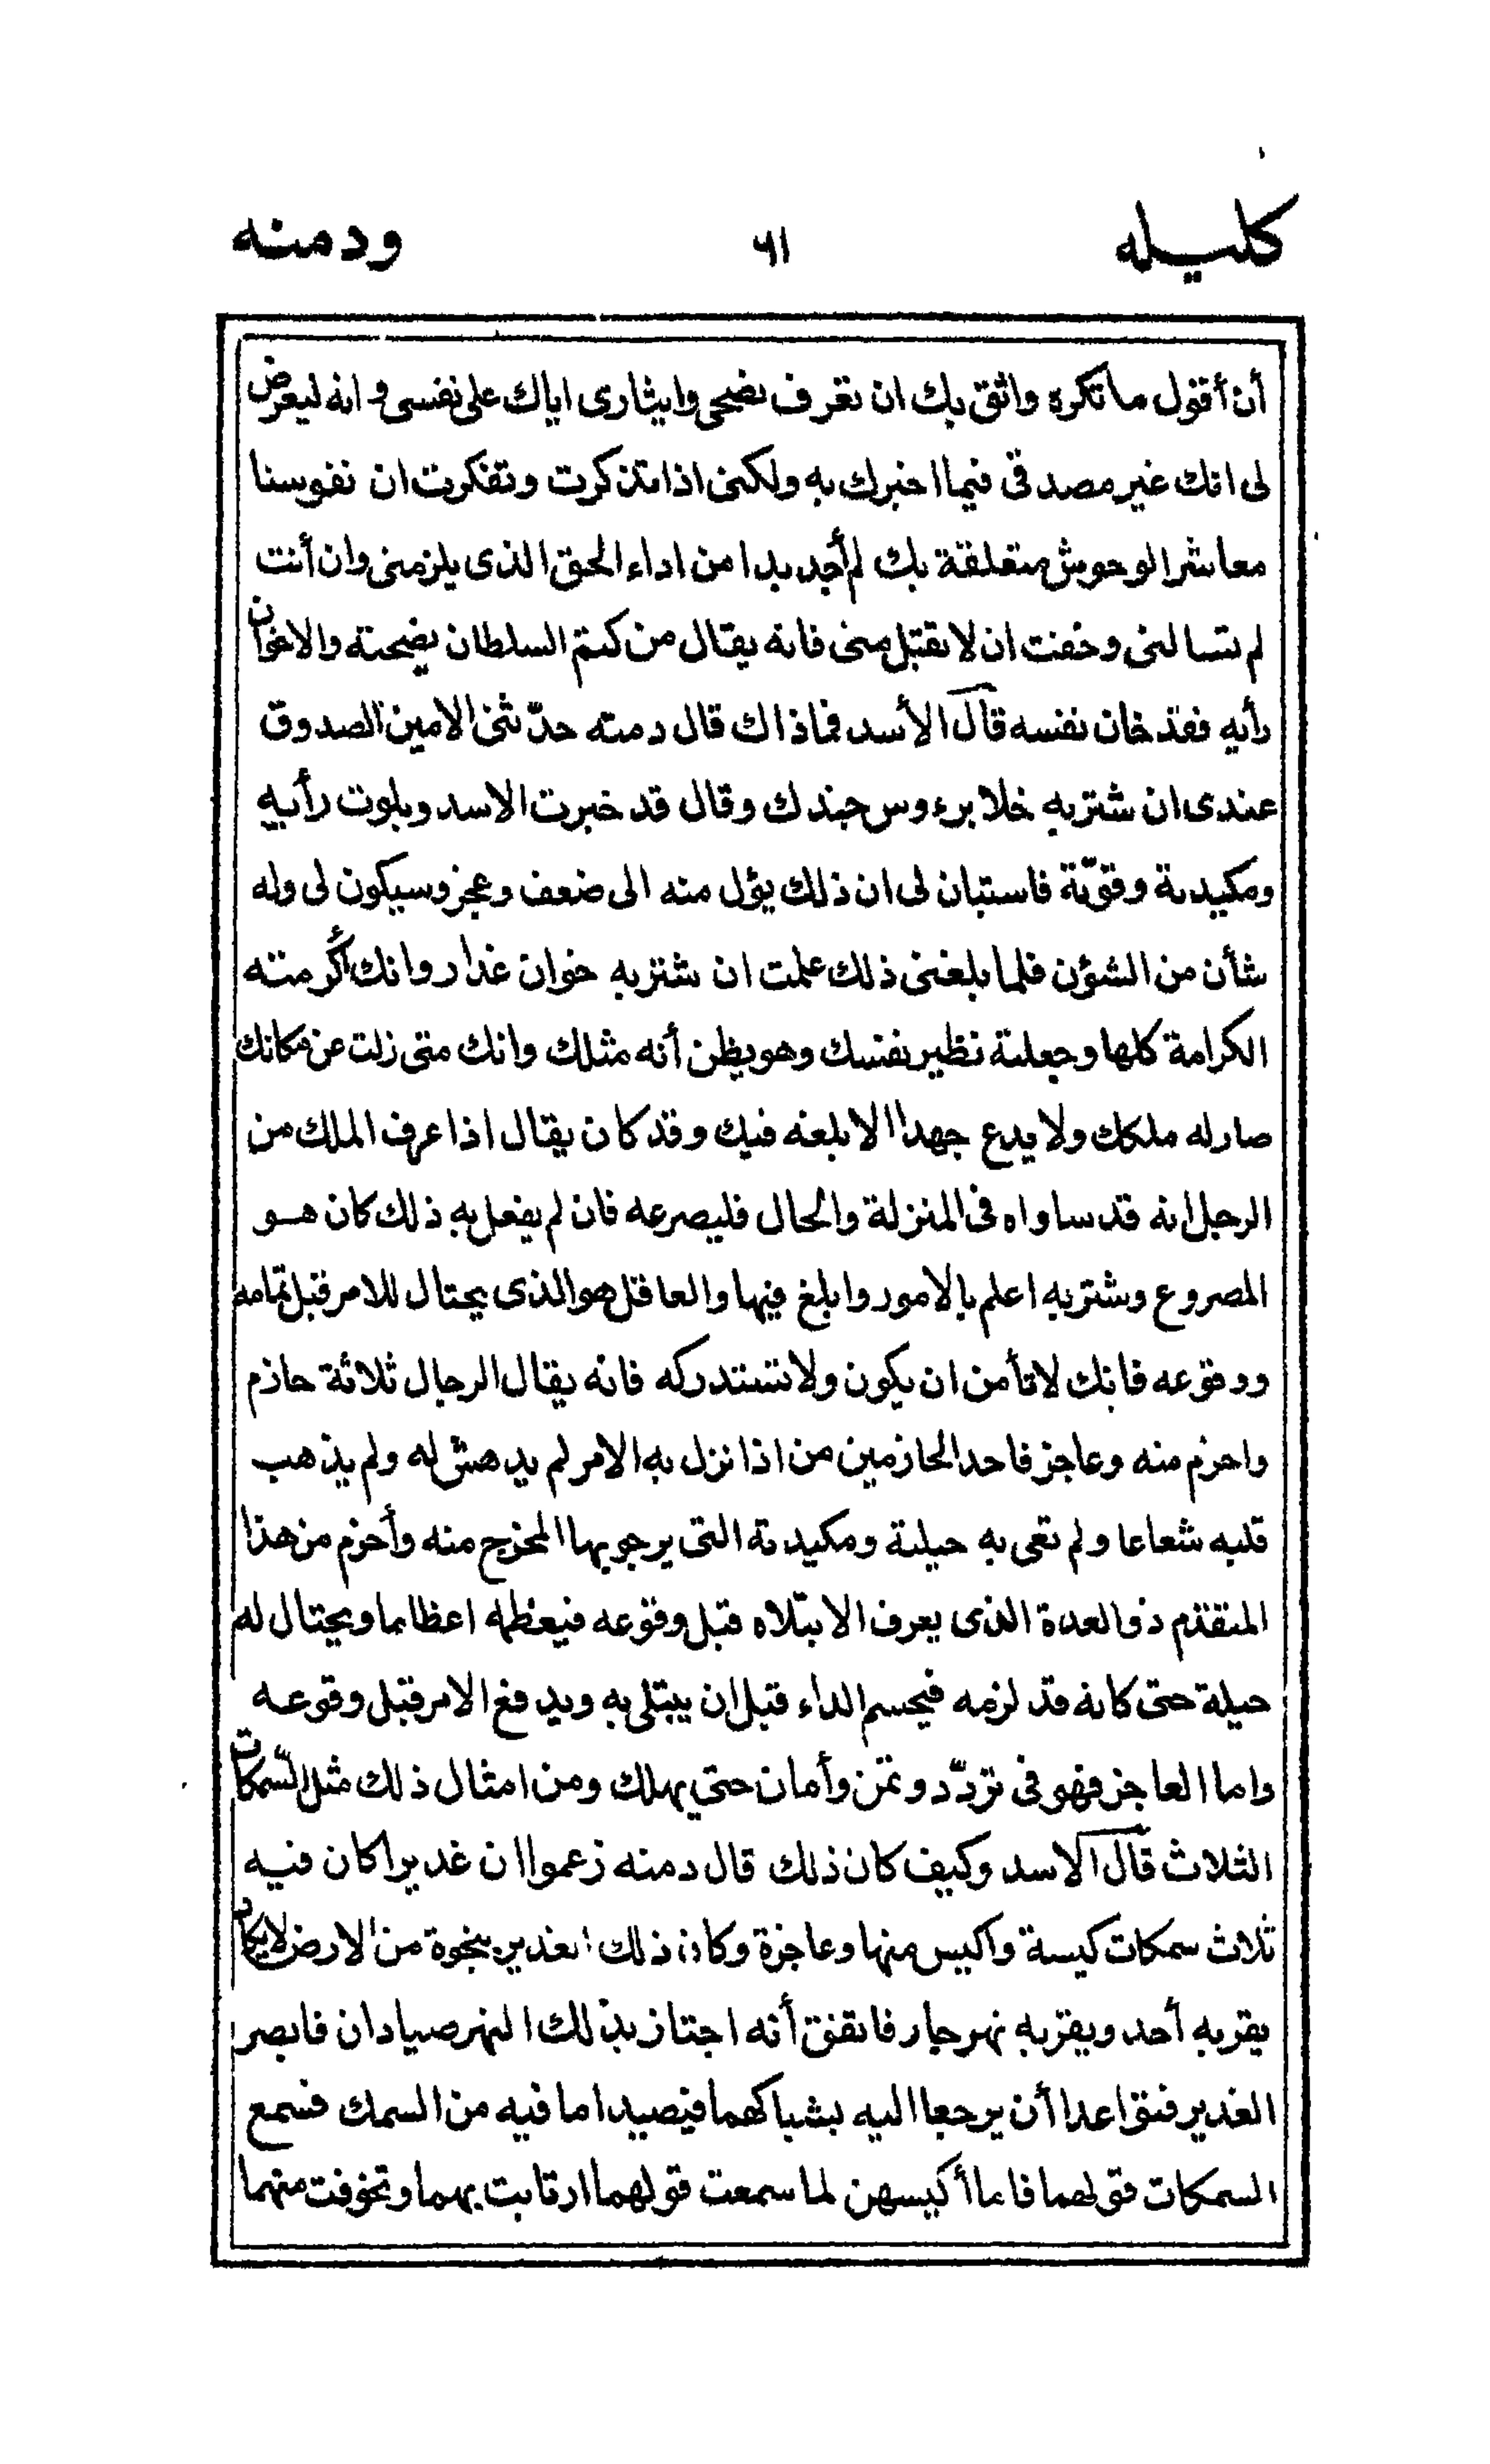 كليله ٦١ ودمنه
أن أقول ما تكره واثق بك ان تعرف نصحى وايثارى اياك على نفسى وانه ليعرض
لى انك غير مصدقى فيما اخبرك به ولكنى اذا تذكرت وتفكرت ان نفوسنا
معاشر الوحوش متعلقة بك لم أجد بدا من اداء الحق الذى يلزمنى وان أنت
لم تسالنى وخفت ان لا تقبل منى فانه يقال من كتم السلطان نصيحته والاخوان
رأيه فقد خان نفسه قال الأسد فماذاك قال دمنه حدّثنى الامين الصدوق
عندى ان شتربه خلا برءوس جندك وقال قد خبرت الاسد وبلوت رأيه
ومكيدته وقوّته فاستبان لى ان ذلك يؤل منه الى ضعف وعجز وسيكون لى وله
شأن من الشؤن فلما بلغنى ذلك علمت ان شتربه خوان غدار وانك أكرمته
الكرامة كلها وجعلته نظير نفسك وهو يظن أنه مثلك وانك متى زلت عن مكانك
صار له ملكك ولا يدع جهدا الا بلغه فيك وقد كان يقال اذا عرف الملك من
الرجل انه قد ساواه فى المنزلة والحال فليصرعه فان لم يفعل به ذلك كان هو
المصروع وشتربه اعلم بالامور وابلغ فيها والعاقل هو الذى يحتال للامر قبل تمامه
ووقوعه فانك لا تأمن ان يكون ولا تستدركه فانه يقال الرجال ثلاثة حازم
واحزم منه وعاجز فاحد الحازمين من اذا نزل به الامر لم يدهش له ولم يذهب
قلبه شعاعا ولم تعى به حيلته ومكيدته التى يرجو بها المخرج منه وأحزم من هذا
المتقدّم ذو العدة الذى يعرف الابتلاه قبل وقوعه فيعظمه اعظاما ويحتال له
حيلة حتى كانه قد لزمه فيحسم الداء قبل ان يبتلى به ويدفع الامر قبل وقوعه
واما العاجز فهو فى تردّد وتمن وأمان حتى يهلك ومن امثال ذلك مثل السّمكات
الثلاث قال الاسد وكيف كان ذلك قال دمنه زعموا ان غديرا كان فيه
ثلاث سمكات كيسة واكيس منها وعاجزة وكان ذلك الغدير بنجوة من الارض لا يكاد
يقربه أحد وبقربه نهر جار فاتفق أنه اجتاز بذلك النهر صيادان فابصر
الغدير فتواعدا أن يرجعا اليه بشباكهما فيصيدا ما فيه من السمك فسمع
السمكات قولهما فاما أكيسهن لما سمعت قولهما ارتابت بهما وتخوفت منهما